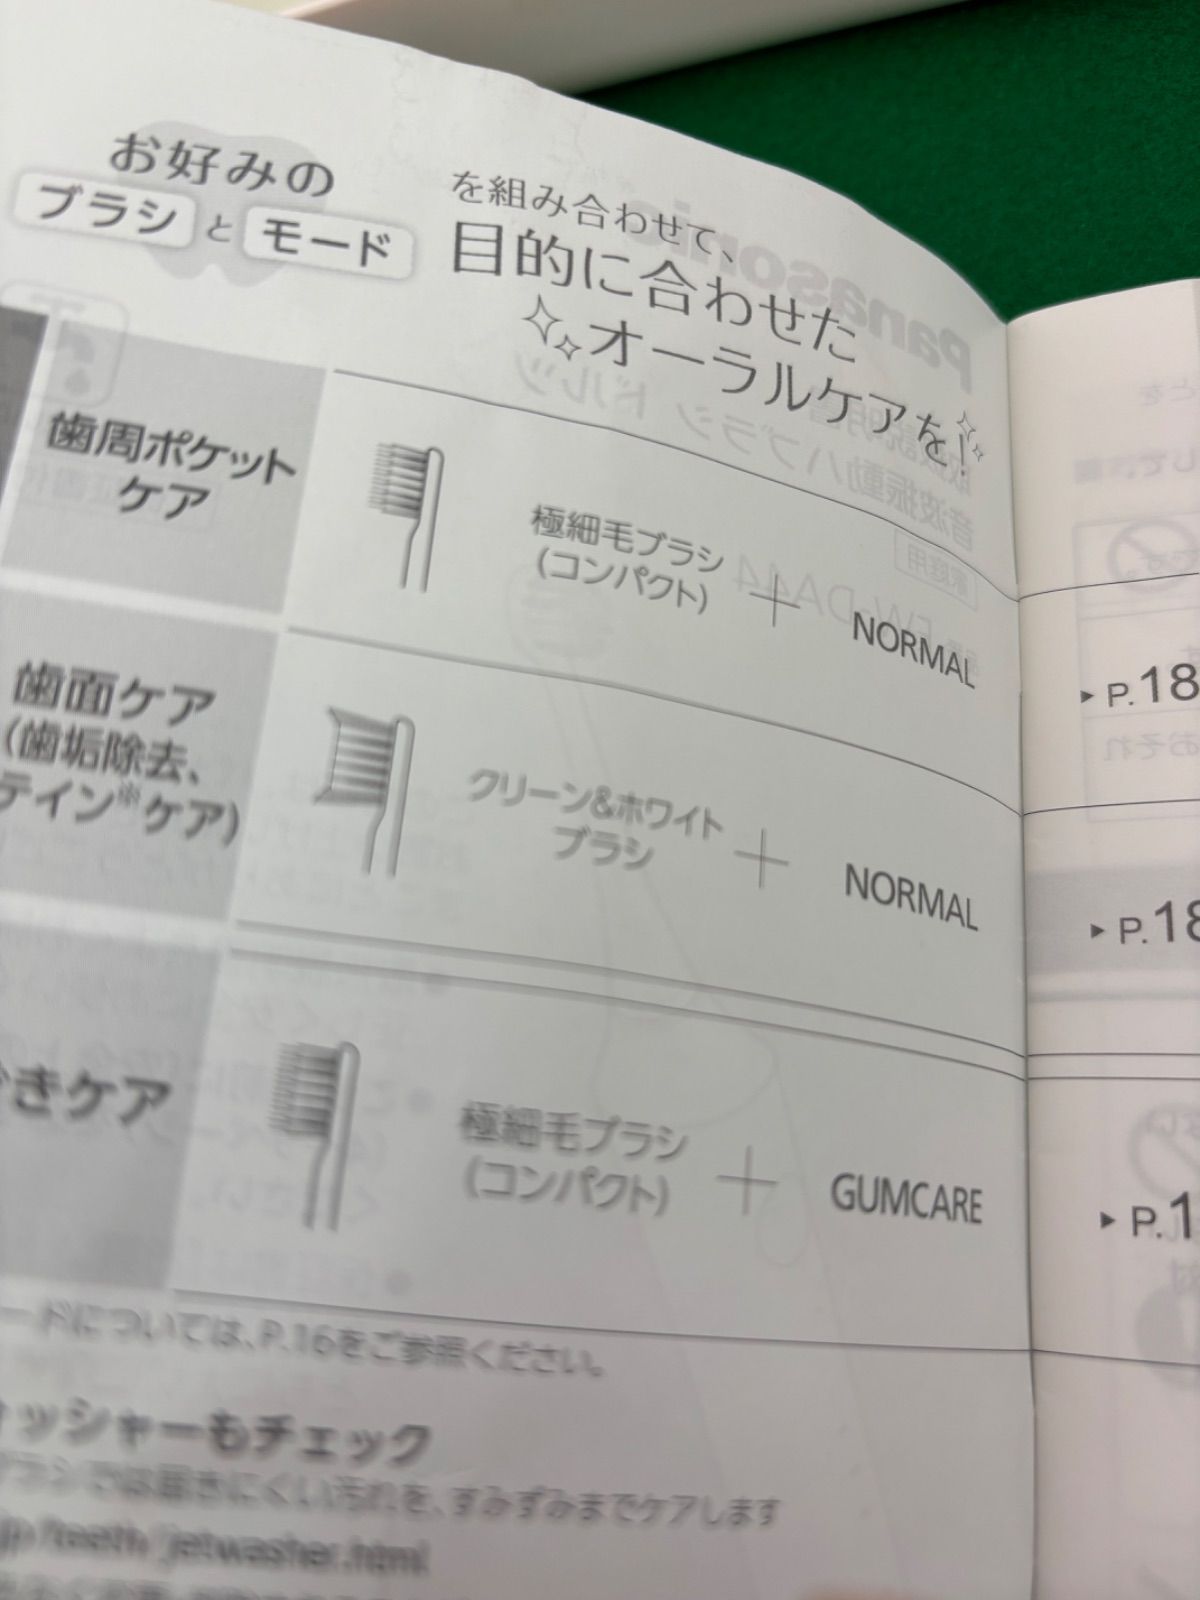 お好みの
ブラシ と モード
を組み合わせて、
目的に合わせた
オーラルケアを!
歯周ポケット
ケア
極細毛ブラシ
(コンパクト)
+
NORMAL
▸ P.18
歯面ケア
(歯垢除去、
テイン※ケア)
クリーン&ホワイト
ブラシ
+
NORMAL
▸ P.18
きケア
極細毛ブラシ
(コンパクト)
+
GUMCARE
▸ P.1
ードについては、P.16をご参照ください。
ォッシャーもチェック
ブラシでは届きにくい汚れを、すみずみまでケアします
jp/teeth/jetwasher.html